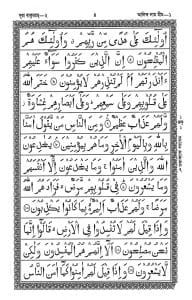 সূরা বাক্বারাহ—২
আলিফ লাম মীম—১
اُولٰٓئِكَ عَلٰى هُدًى مِّنْ رَّبِّهِمْ وَاُولٰٓئِكَ هُمُ
الْمُفْلِحُوْنَ ۝ اِنَّ الَّذِيْنَ كَفَرُوْا سَوَآءٌ عَلَيْهِمْ
ءَاَنْذَرْتَهُمْ اَمْ لَمْ تُنْذِرْهُمْ لَا يُؤْمِنُوْنَ ۝ خَتَمَ اللّٰهُ
عَلٰى قُلُوْبِهِمْ وَعَلٰى سَمْعِهِمْ وَعَلٰٓى اَبْصَارِهِمْ غِشَاوَةٌ
وَّلَهُمْ عَذَابٌ عَظِيْمٌ ۝ وَمِنَ النَّاسِ مَنْ يَّقُوْلُ اٰمَنَّا
بِاللّٰهِ وَبِالْيَوْمِ الْاٰخِرِ وَمَا هُمْ بِمُؤْمِنِيْنَ ۝ يُخٰدِعُوْنَ
اللّٰهَ وَالَّذِيْنَ اٰمَنُوْا وَمَا يَخْدَعُوْنَ اِلَّآ اَنْفُسَهُمْ
وَمَا يَشْعُرُوْنَ ۝ فِيْ قُلُوْبِهِمْ مَّرَضٌ فَزَادَهُمُ اللّٰهُ
مَرَضًا وَلَهُمْ عَذَابٌ اَلِيْمٌ بِمَا كَانُوْا يَكْذِبُوْنَ ۝
وَاِذَا قِيْلَ لَهُمْ لَا تُفْسِدُوْا فِى الْاَرْضِ قَالُوْٓا اِنَّمَا
نَحْنُ مُصْلِحُوْنَ ۝ اَلَآ اِنَّهُمْ هُمُ الْمُفْسِدُوْنَ وَلٰكِنْ
لَّا يَشْعُرُوْنَ ۝ وَاِذَا قِيْلَ لَهُمْ اٰمِنُوْا كَمَآ اٰمَنَ النَّاسُ